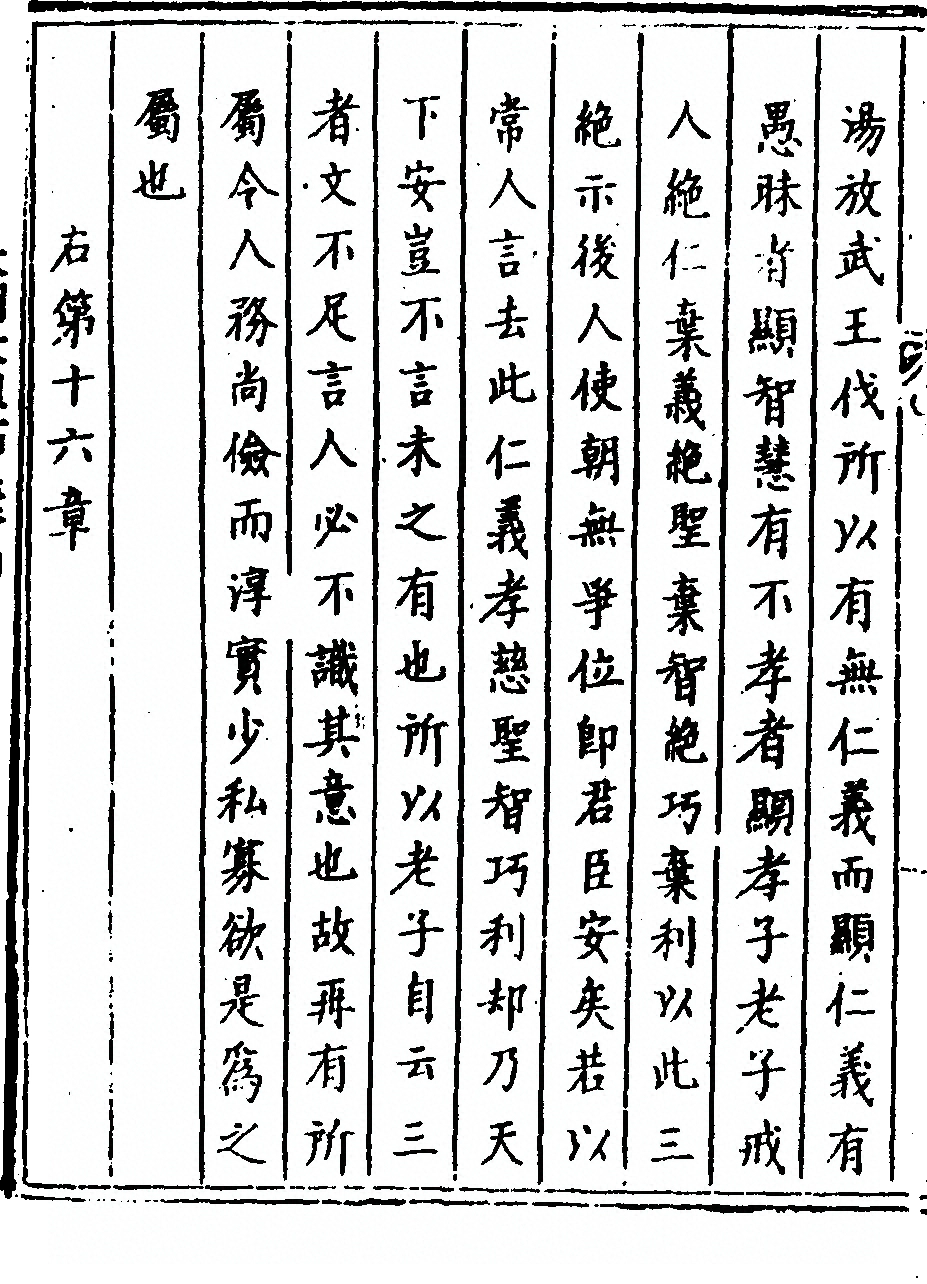 湯放武王伐所以有無仁義而顯仁義有
愚昧者顯智慧有不孝者顯孝子老子戒
人絶仁棄義絶聖棄智絶巧棄利以此三
絶示後人使朝無爭位即君臣安矣若以
常人言去此仁義孝慈聖智巧利却乃天
下安豈不言未之有也所以老子自云三
者文不足言人必不識其意也故再有所
屬令人務尚儉而淳實少私寡欲是爲之
屬也
右第十六章